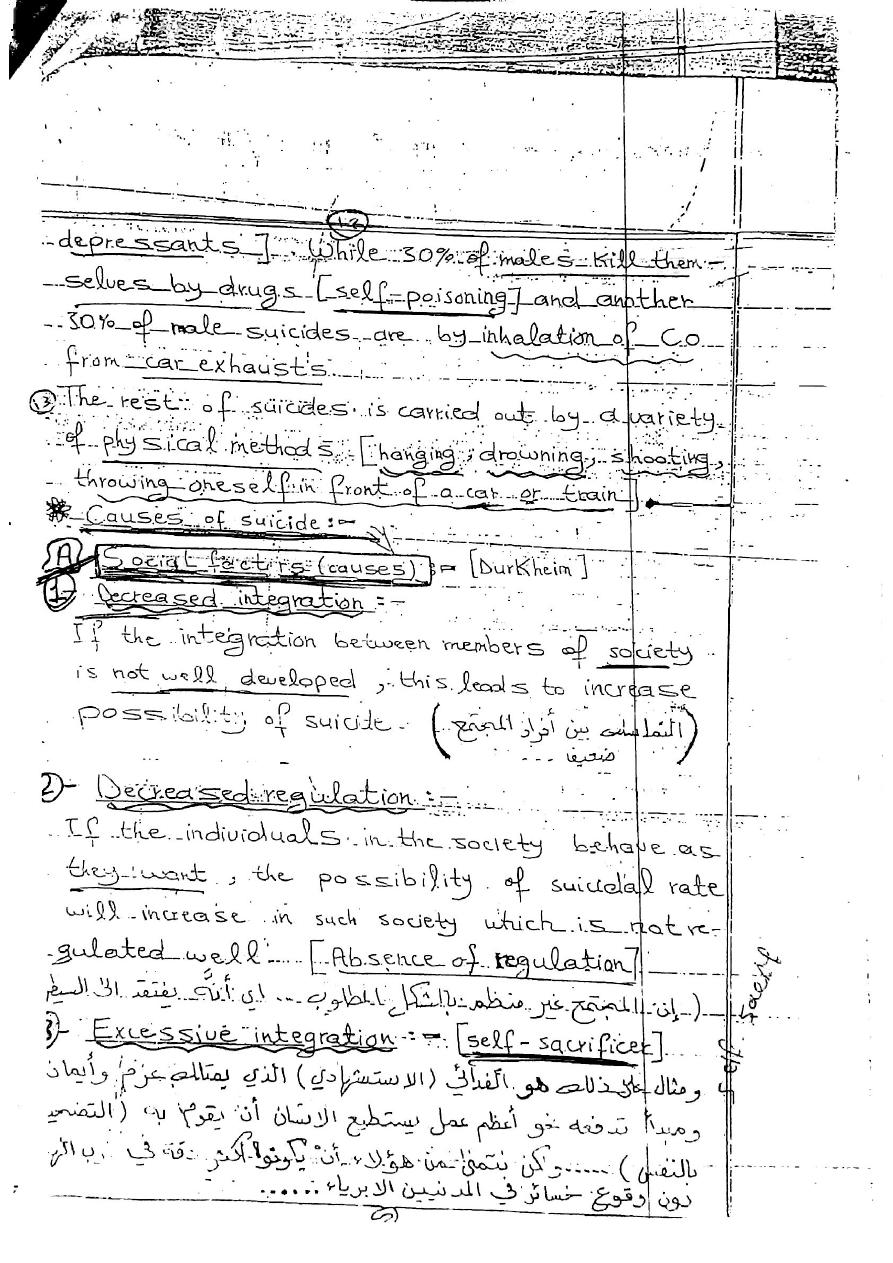 depressants ]. While 30% of males kill them-
selves by drugs [self-poisoning] and another
30% of male suicides are by inhalation of CO
from car exhaust's
(3) The rest of suicides is carried out by a variety
of physical methods [hanging, drowning, shooting,
throwing oneself in front of a car or train].
* Causes of suicide :-
A Social factors (causes) :- [Durkheim]
1- Decreased integration :-
If the integration between members of society
is not well developed, this leads to increase
possibility of suicide. (التماسك بين أفراد المجتمع
ضعيف ... )
2)- Decreased regulation :-
If the individuals in the society behave as
they want, the possibility of suicidal rate
will increase in such society which is not re-
gulated well [Absence of regulation]
( إن المجتمع غير منظم بالشكل المطلوب ... اي أنه يفتقد الى
3)- Excessive integration :- [self-sacrificer]
ومثال على ذلك هو الفدائي (الاستشهادي) الذي يمتلك عزم وأيمان
ومبدأ تدفعه نحو أعظم عمل يستطيع الانسان أن يقوم به (التضحية
بالنفس) ..... ولكن نتمنى من هؤلاء أن يكونوا أكثر دقة في
دون وقوع خسائر في المدنيين الابرياء ......